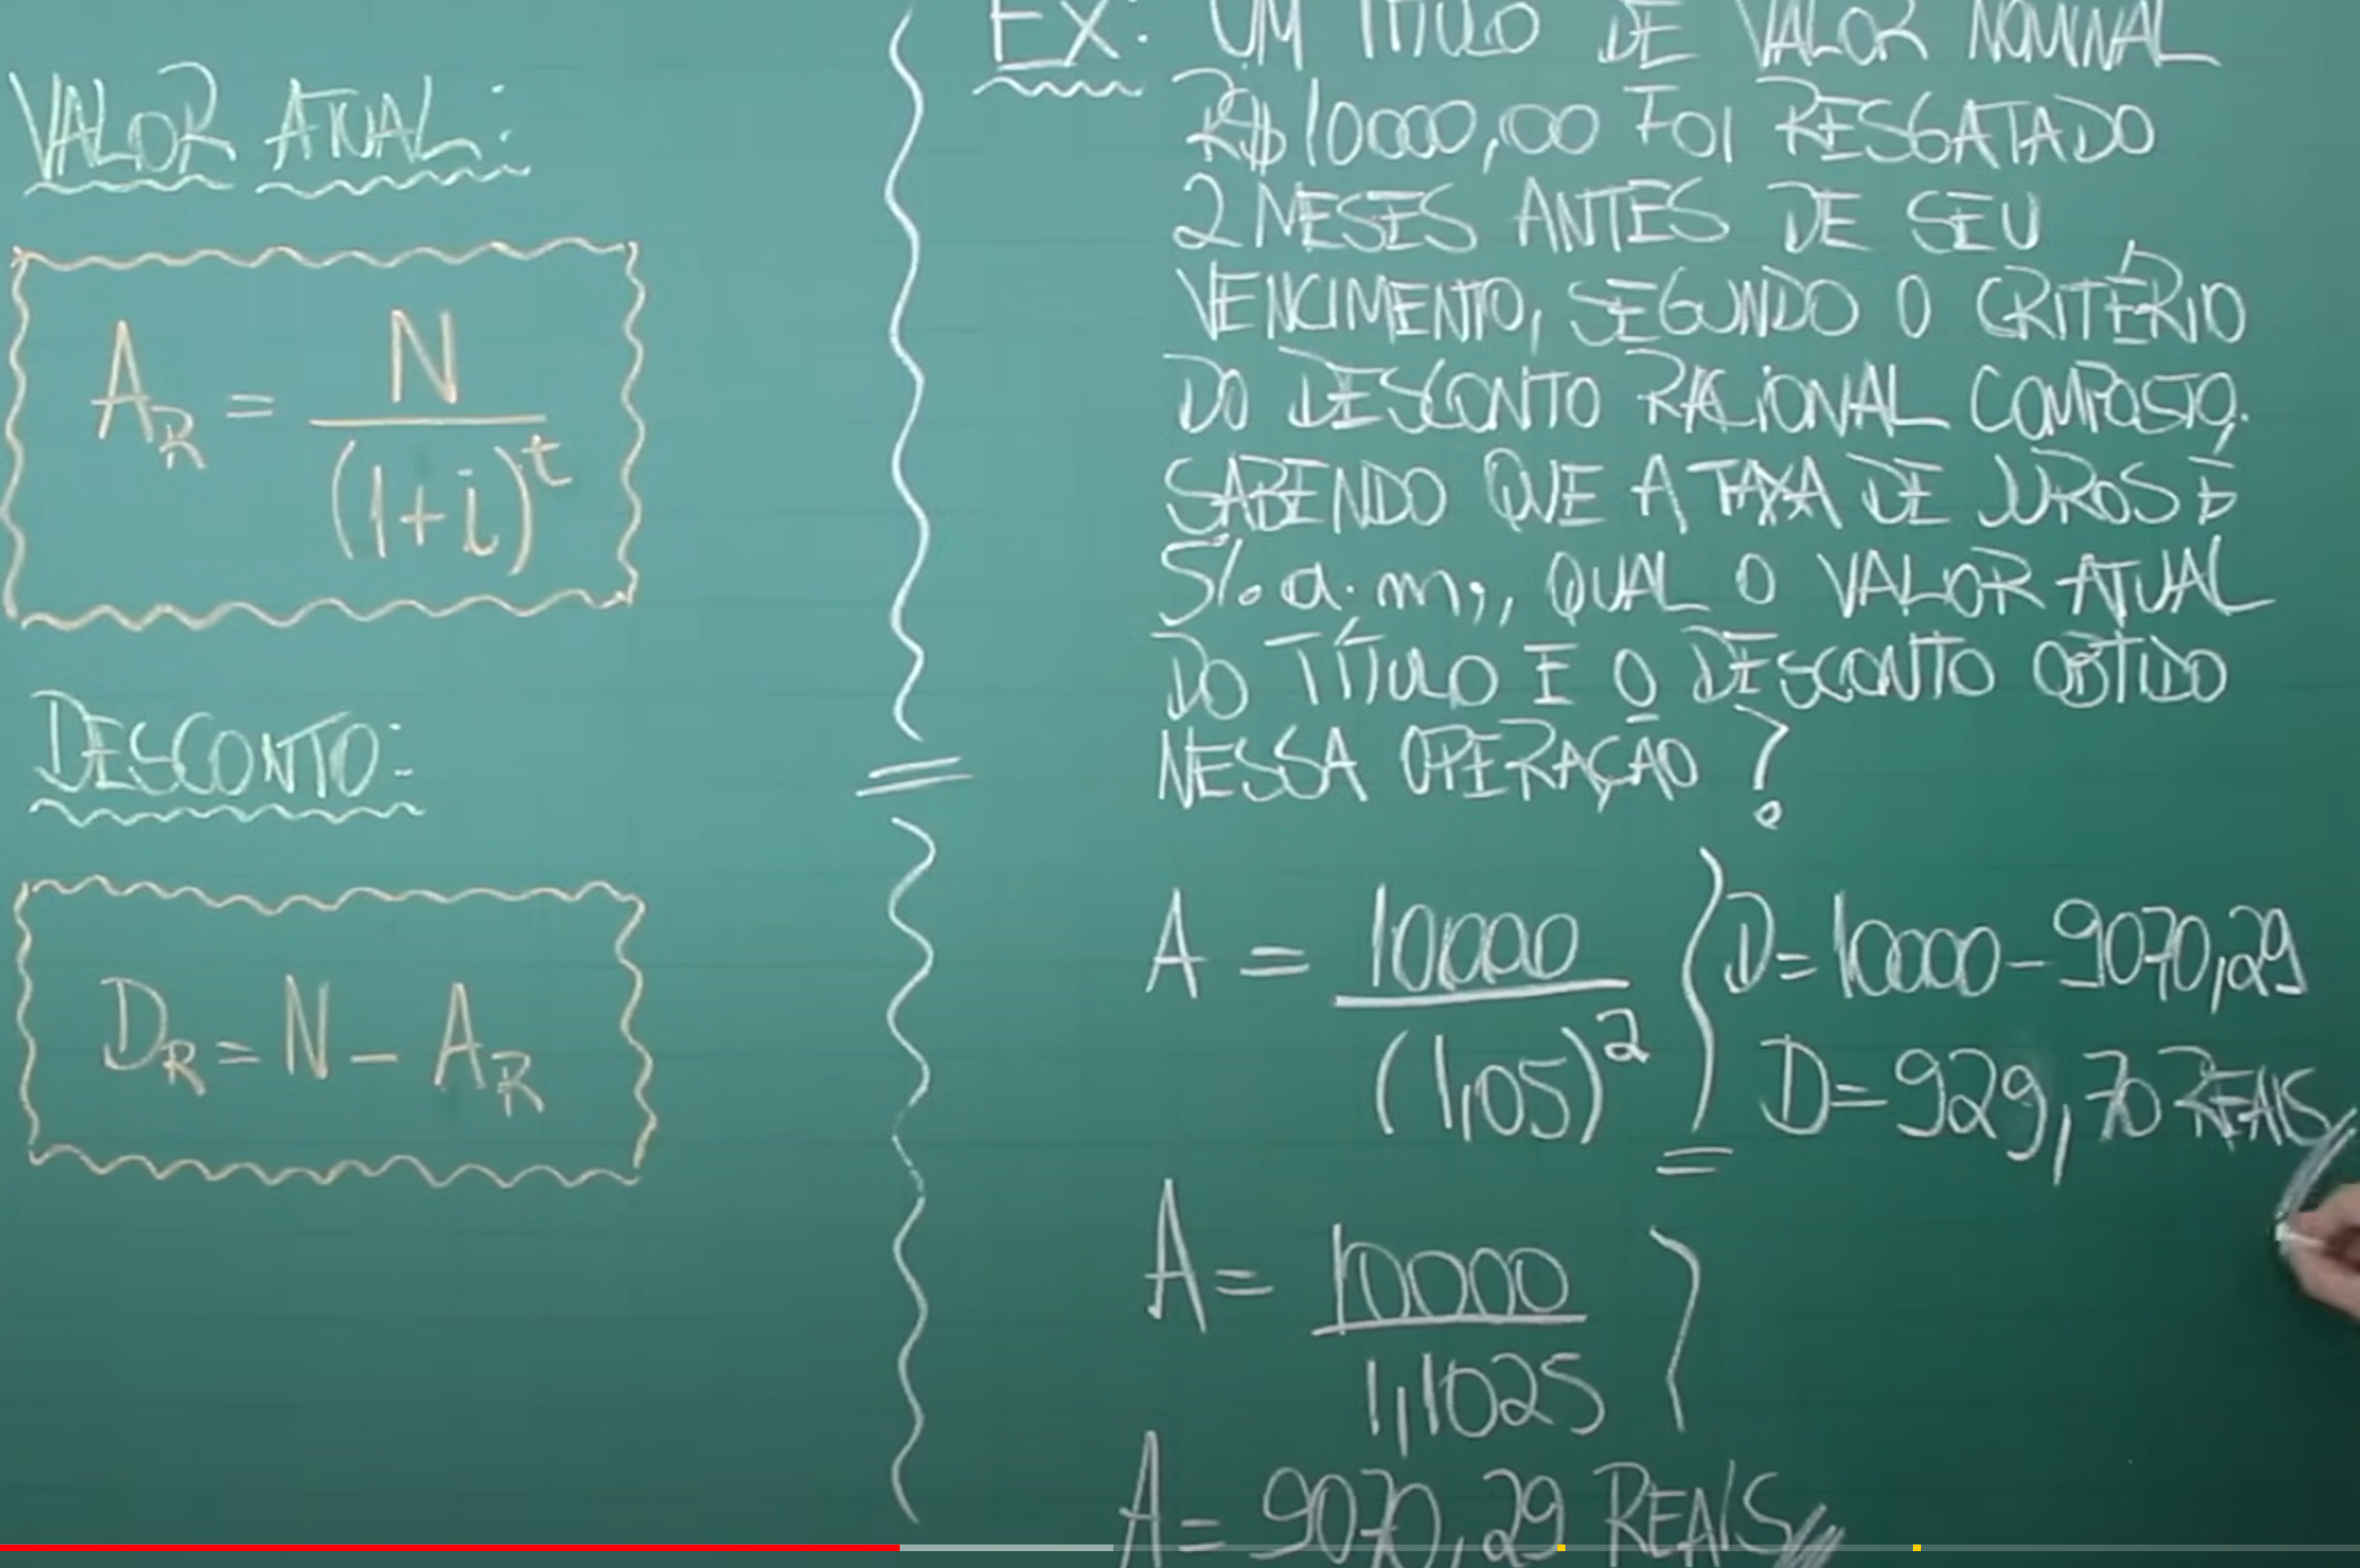 VALOR ATUAL:
A_R = N / (1+i)^t
DESCONTO:
D_R = N - A_R
EX: UM TÍTULO DE VALOR NOMINAL
R$10000,00 FOI RESGATADO
2 MESES ANTES DE SEU
VENCIMENTO, SEGUNDO O CRITÉRIO
DO DESCONTO RACIONAL COMPOSTO.
SABENDO QUE A TAXA DE JUROS É
5% a.m., QUAL O VALOR ATUAL
DO TÍTULO E O DESCONTO OBTIDO
NESSA OPERAÇÃO?
A = 10000 / (1,05)^2
A = 10000 / 1,1025
A = 9070,29 REAIS
D = 10000 - 9070,29
D = 929,70 REAIS